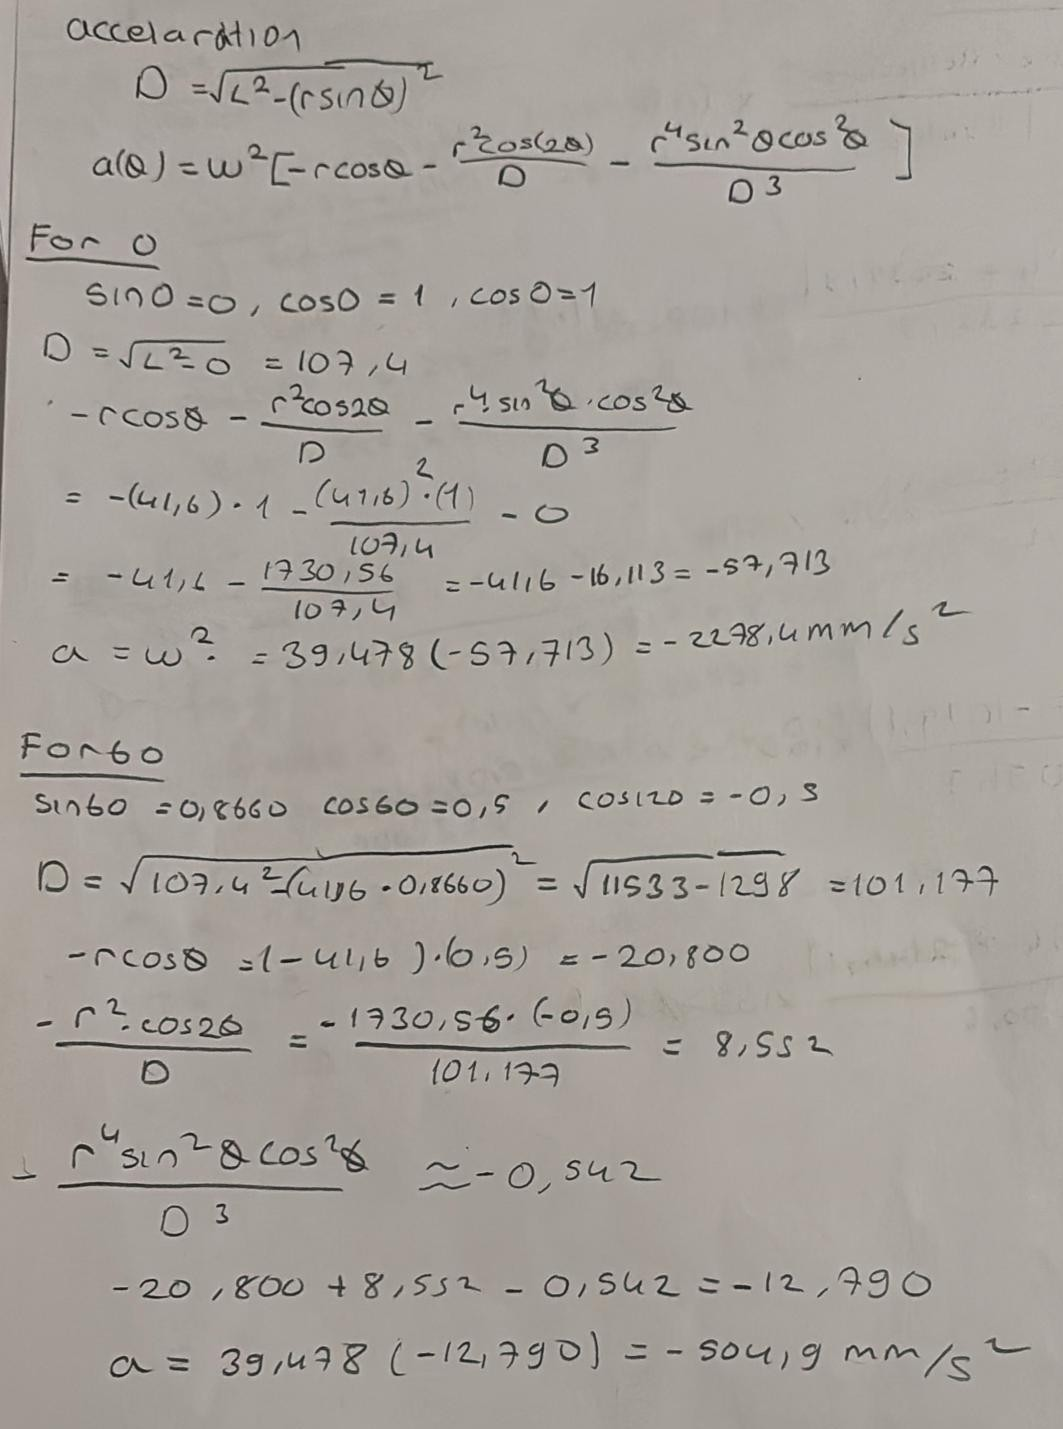 accelaration
D = √L² - (r sin θ)²
a(θ) = w² [-rcosθ - r²cos(2θ)/D - r⁴sin²θcos²θ/D³]
For 0
sin0 = 0, cos0 = 1, cos0 = 1
D = √L²-0 = 107,4
-rcosθ - r²cos2θ/D - r⁴.sin²θ.cos²θ/D³
= -(41,6).1 - (41,6)².(1)/107,4 - 0
= -41,6 - 1730,56/107,4 = -41,6 - 16,113 = -57,713
a = w². = 39,478 (-57,713) = -2278,4 mm/s²
For 60
sin60 = 0,8660 cos60 = 0,5, cos120 = -0,5
D = √107,4² - (41,6 . 0,8660)² = √11533 - 1298 = 101,177
-rcosθ = (-41,6).(0,5) = -20,800
-r².cos2θ/D = -1730,56.(-0,5)/101,177 = 8,552
- r⁴sin²θcos²θ/D³ ≈ -0,542
-20,800 + 8,552 - 0,542 = -12,790
a = 39,478 (-12,790) = -504,9 mm/s²